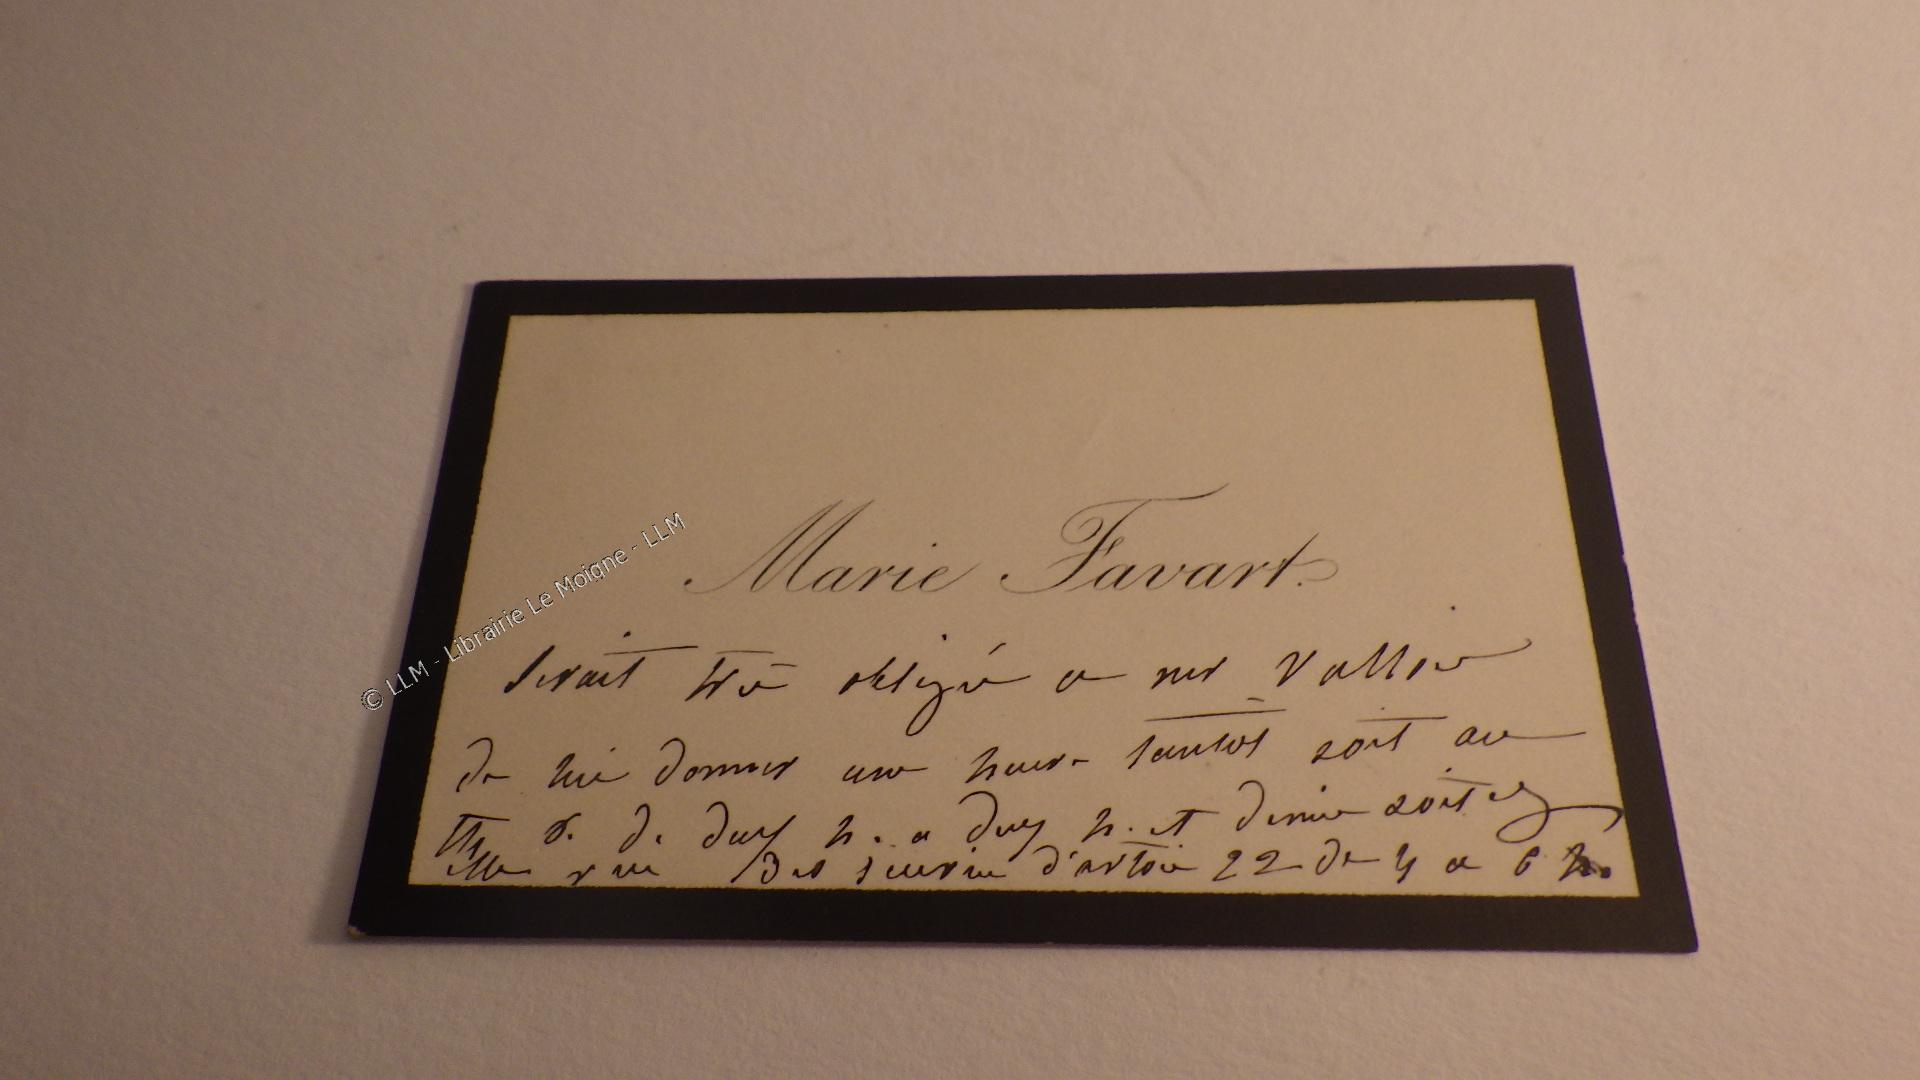 Marie Favart.
serait très obligée a mr Vallier
de lui donner une heure tantôt soit au
de deux h. a deux h. et demie soit
rue des écuries d'artois 22 de 4 a 6 h.
© LLM - Librairie Le Moigne - LLM